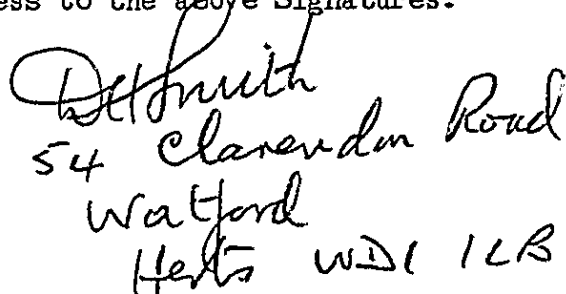 ess to the above Signatures.
DHSmith
54 Clarendon Road
Watford
Herts WD1 1LB